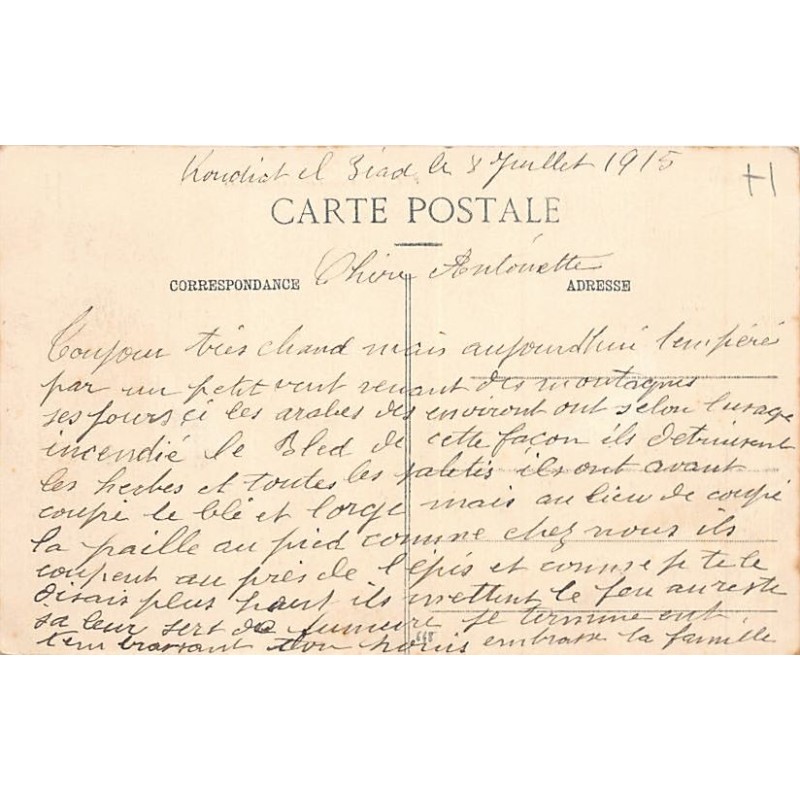 Koudiat el Biad le 8 Juillet 1915
+1
CARTE POSTALE
Chère Antoinette
CORRESPONDANCE
ADRESSE
Toujour très chaud mais aujourdhui tempéré
par un petit vent venant des montagnes
ses jours çi les arabes des environt ont selon lusage
incendié le Bled de cette façon ils detruisent
les herbes et toutes les saletés ils ont avant
coupé le blé et lorge mais au lieu de coupé
la paille au pied comme chez nous ils
coupent au près de l'épis et comme je te le
disais plus haut ils mettent le feu au reste
sa leur sert de fumure je termine ent
t'embrassant ton embrasse la famille